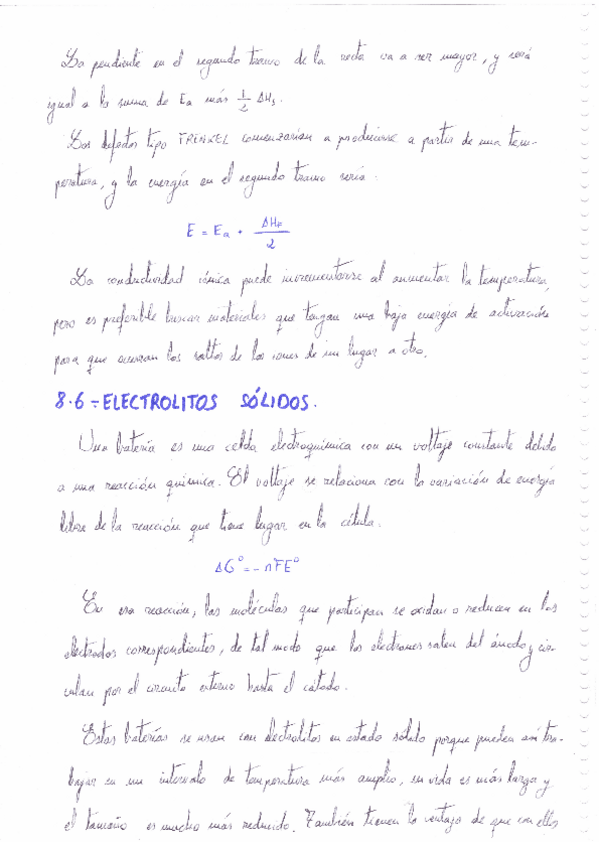 La pendiente en el segundo tramo de la recta va a ser mayor, y será
igual a la suma de Ea más 1/2 ΔHs.
Los defectos tipo FRENKEL comenzarían a producirse a partir de una tem-
peratura, y la energía en el segundo tramo sería:
E = Ea + ΔHF/2
La conductividad iónica puede incrementarse al aumentar la temperatura,
pero es preferible buscar materiales que tengan una baja energía de activación
para que ocurran los saltos de los iones de un lugar a otro.
8.6.- ELECTROLITOS SÓLIDOS.
Una batería es una celda electroquímica con un voltaje constante debido
a una reacción química. El voltaje se relaciona con la variación de energía
libre de la reacción que tiene lugar en la célula:
ΔG° = -nFE°
En esa reacción, las moléculas que participan se oxidan o reducen en los
electrodos correspondientes, de tal modo que los electrones salen del ánodo y cir-
culan por el circuito externo hasta el cátodo.
Estas baterías se usan con electrolitos en estado sólido porque pueden así tra-
bajar en un intervalo de temperatura más amplio, su vida es más larga y
el tamaño es mucho más reducido. También tienen la ventaja de que con ellos